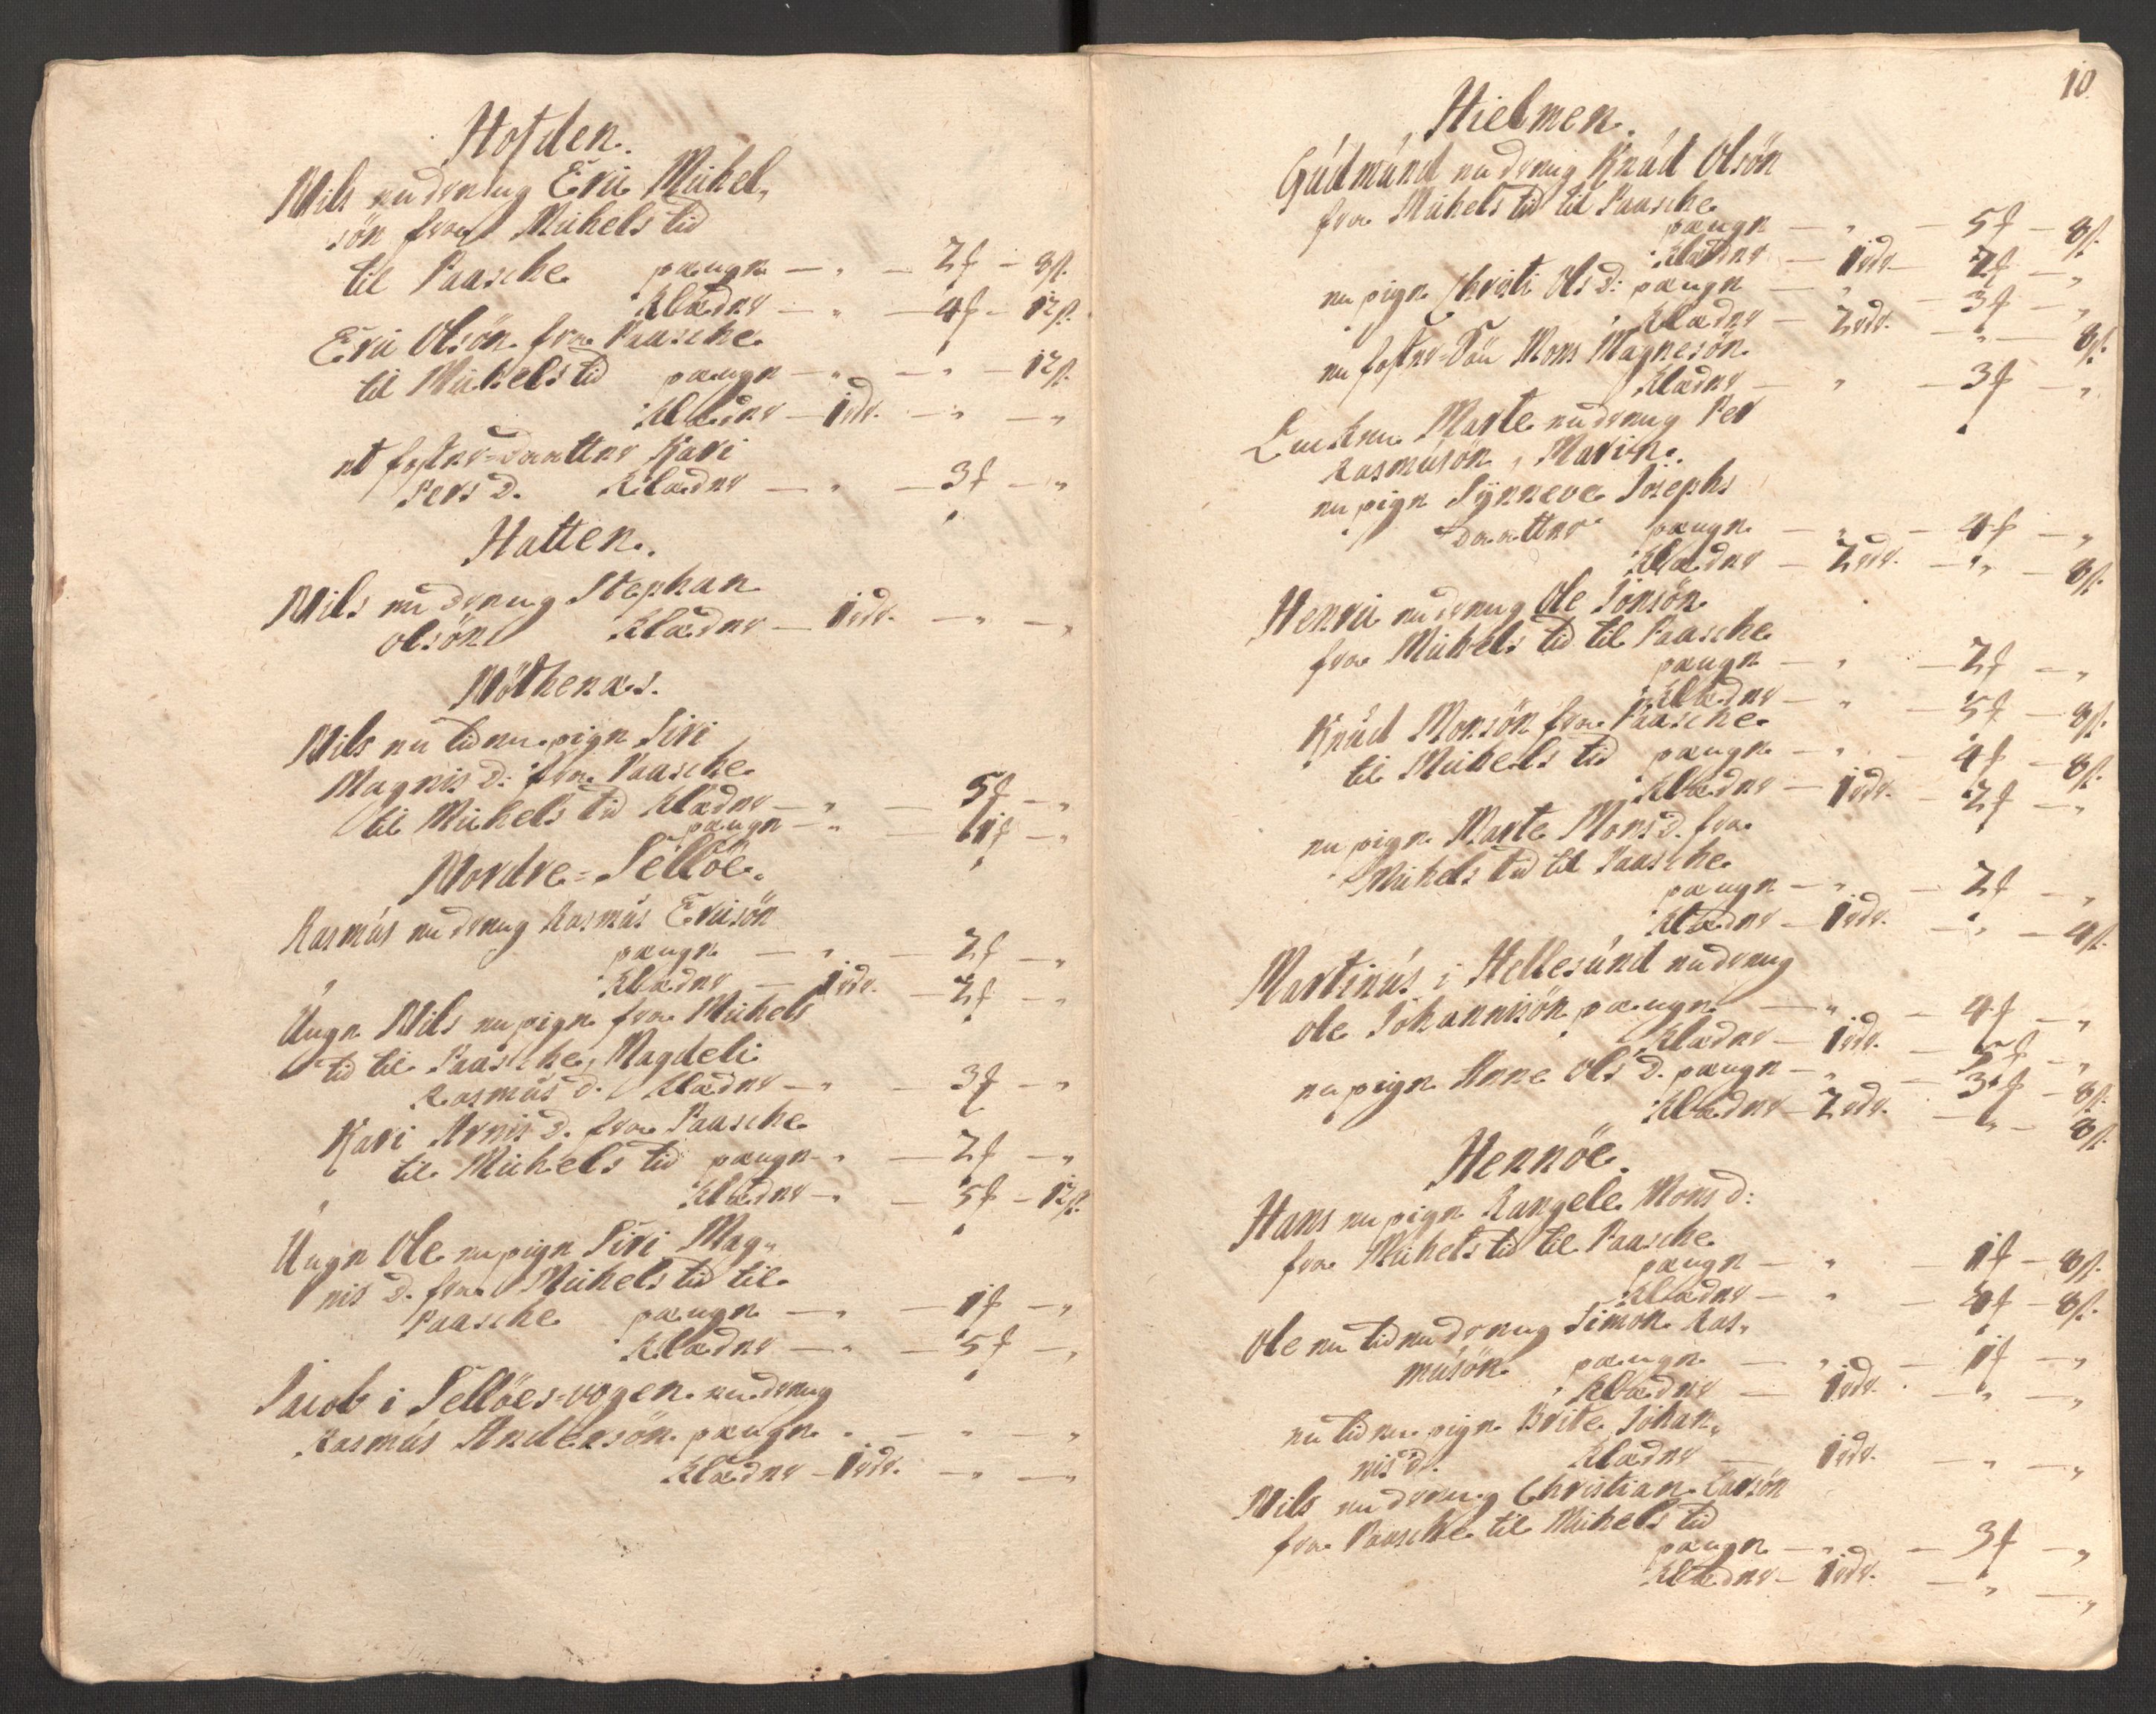 Hofden.
Nils en dreng Eric Michel,
sön fra Michels tid
til Paasche penge — „ — 2 f — 8 ß.
Klæder — „ — 4 f — 12 ß.
Eric Olsön fra Paasche
til Michels tid penge — „ — „ — 12 ß.
Klæder — 1 rdr. — „ — „
et foster-daatter Kari
Pers D. Klæder — „ — 3 f — „
Hatten.
Nils en dreng Stephan
olsön Klæder — 1 rdr. — „ — „
Nöthenæs.
Nils en tiene pige Siri
Magnis D: fra Paasche
til Michels tid Klæder — „ — 5 f — „
penge — „ — 1 f — „
Nordre-Sellöe.
Rasmus en dreng Rasmus Ericsön
penge — „ — 2 f — „
Klæder — 1 rdr. — 2 f — „
Unge Nils en pige fra Michels
tid til Paasche, Magdeli
Rasmus D. Klæder — „ — 3 f — „
Kari Arnis D. fra Paasche
til Michels tid penge — „ — 2 f — „
Klæder — „ — 5 f — 12 ß.
Unge Ole en pige Siri Mag,,
nis D. fra Michels tid til
Paasche penge — „ — 1 f — „
Klæder — „ — 5 f — „
Jacob i Sellöes-vogen en dreng
Rasmus Andersön penge . — „ — „
Klæder — 1 rdr. — „ — „
10
Hielmen.
Gudmund en dreng Knud Olsön
fra Michels tid til Paasche
penge — „ — 5 f — 8 ß.
Klæder — 1 rdr. — 2 f — „
en pige Christi Ols D: penge — „ — 3 f — „
Klæder — 2 rdr. — „ — 8 ß.
en foster-Sön Mons Magnesön
Klæder — „ — 3 f — „
Encken Marte en dreng Per
Rasmusön, Marin.
en pige Synneve Josephs
Daatter penge — „ — 4 f — „
Klæder — 2 rdr. — „ — 8 ß.
Henric en dreng Ole Jonsön
fra Michels tid til Paasche
penge — „ — 2 f — „
Klæder — „ — 5 f — 8 ß.
Knud Monsön fra Paasche
til Michels tid penge — „ — 4 f — 8 ß.
Klæder — 1 rdr. — 2 f — „
en pige Marte Mons D. fra
Michels tid til Paasche
penge — „ — 2 f — „
Klæder — 1 rdr. — „ — 4 ß.
Martinus i Hellesund en dreng
Ole Johannisön penge — „ — 4 f — „
Klæder — 1 rdr. — 5 f — „
en pige Anne Ols D. penge — „ — 3 f — 8 ß.
Klæder — 2 rdr. — „ — 8 ß.
Hennöe.
Hans en pige Rangele Mons D:
fra Michels tid til Paasche
penge — „ — 1 f — 8 ß.
Klæder — „ — 4 f — 8 ß.
Ole en tiene dreng Simon Ras,,
musön penge — „ — 1 f — „
Klæder — 1 rdr. — „ — „
en tiene pige Brite Johan,,
nis D. Klæder — 1 rdr. — „ — „
Nils en dreng Christian Larsön
fra Paasche til Michels tid
penge — „ — 3 f — „
Klæder — 1 rdr. — „ — „